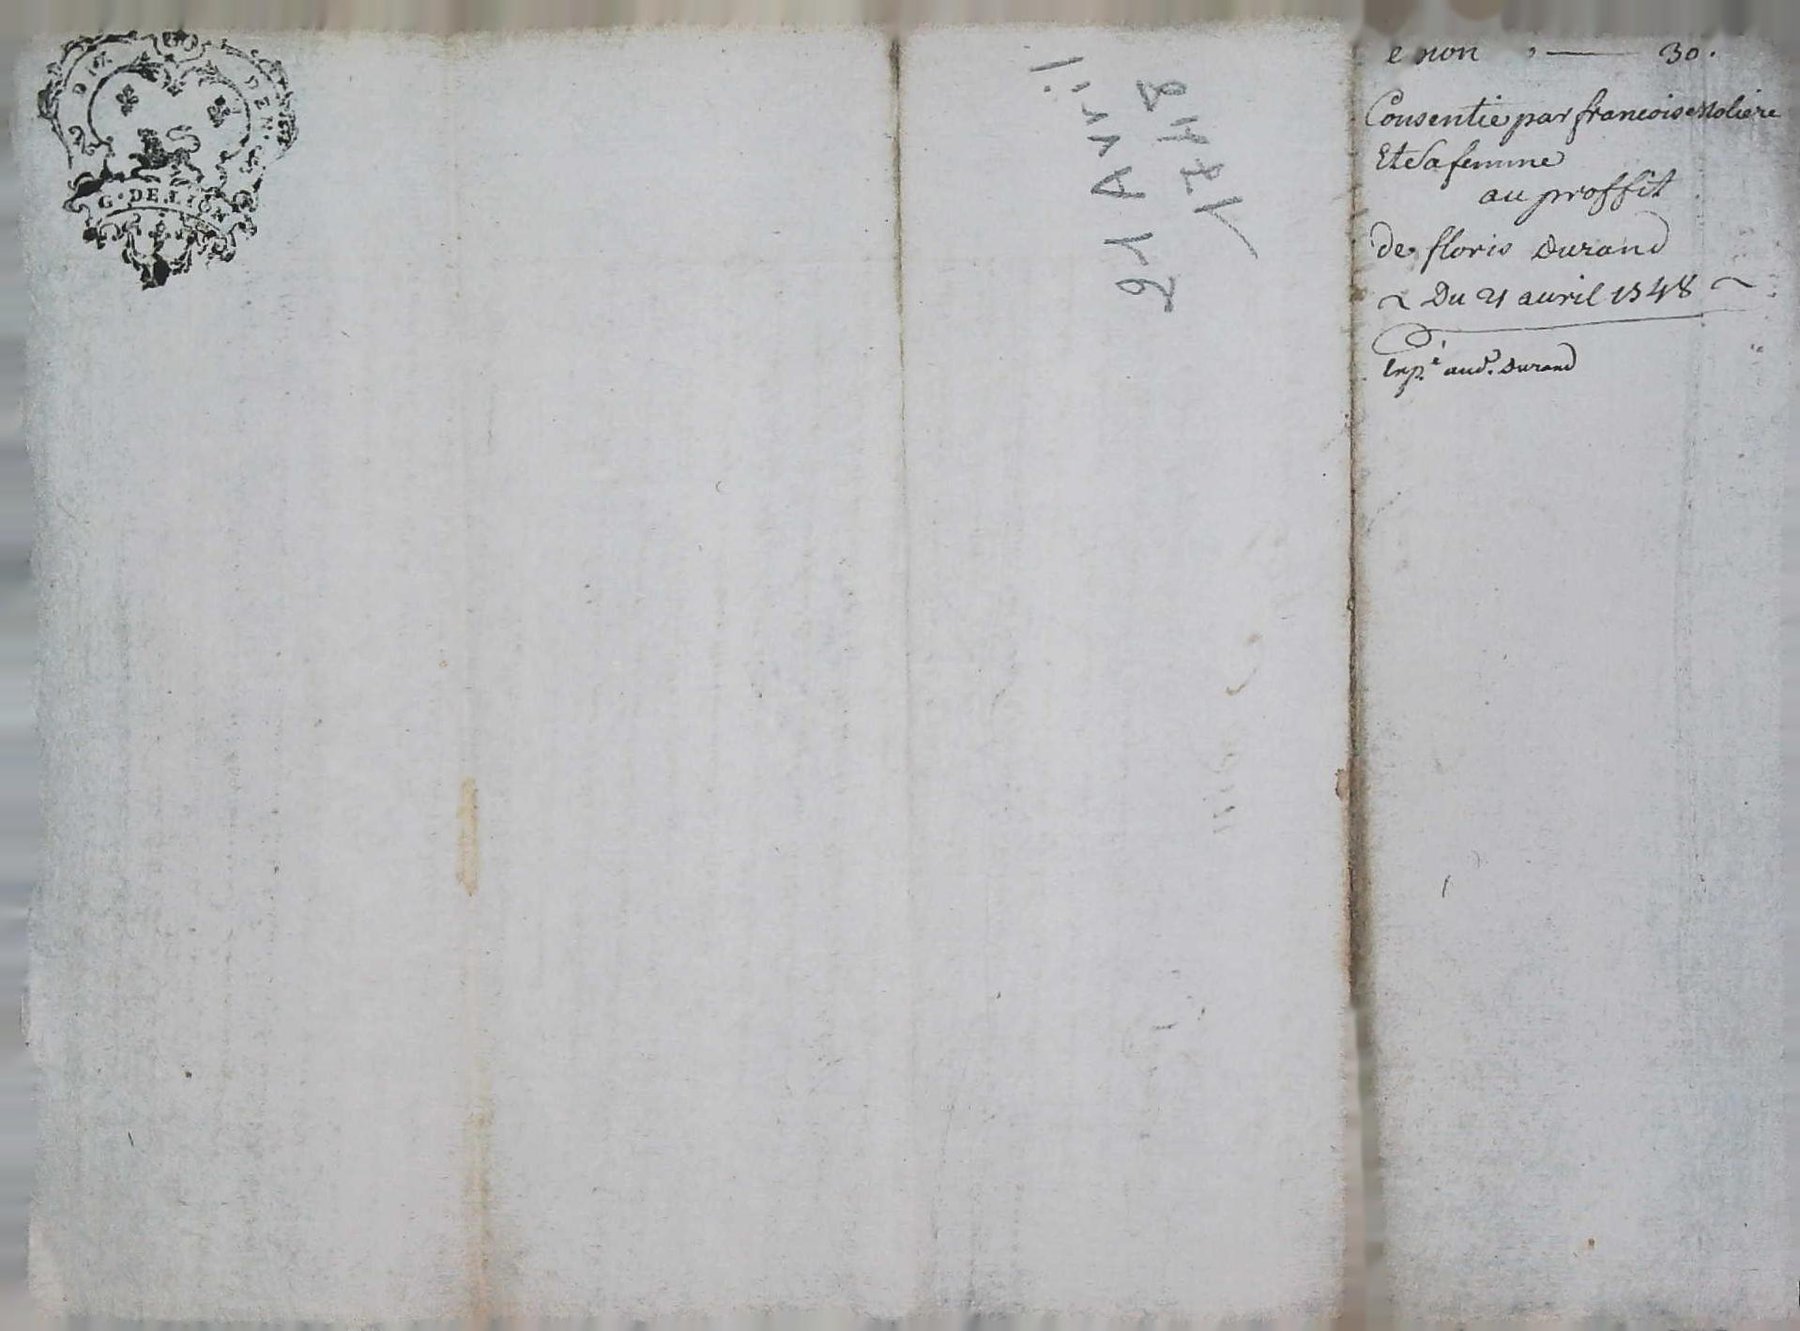 2 DIX DEN.
G. DE LYON
21 Avril
1748
e non , — 30.
Consentie par francois Moliere
Et Sa femme
au proffit
de floris Durand
~ Du 21 auril 1548 ~
Exp.e aud. Durand